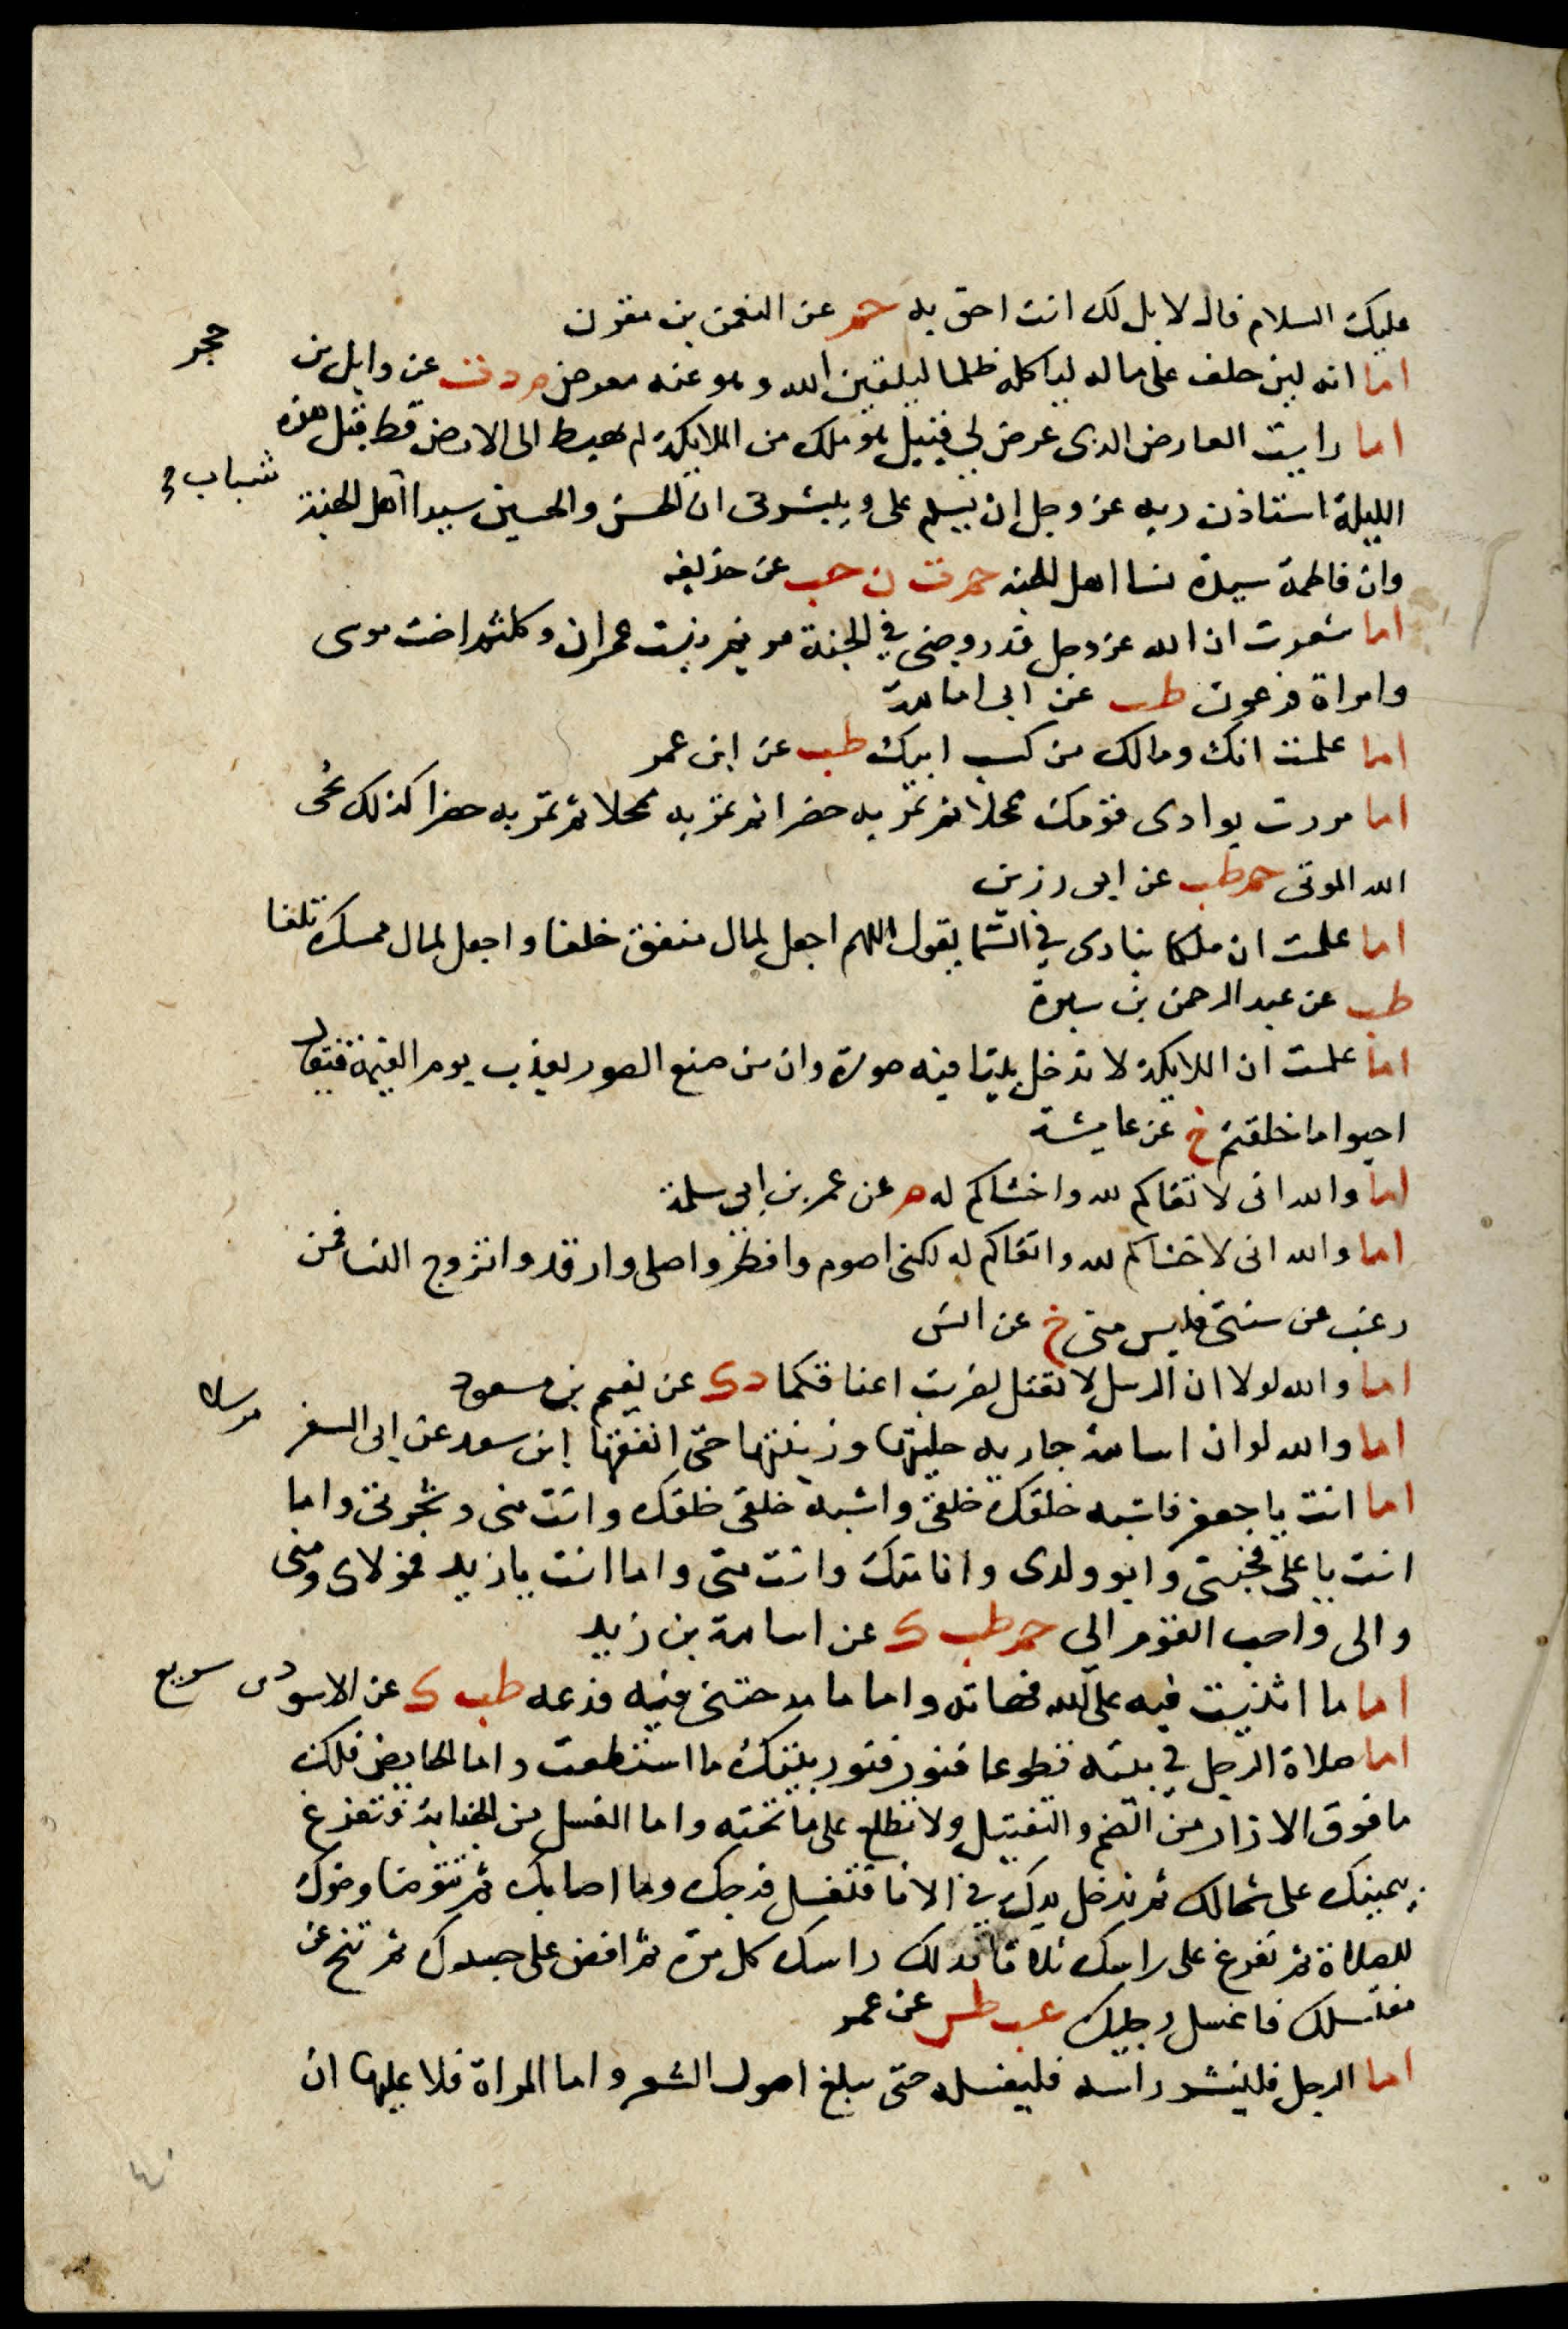 عليك السلام قال لا بل لك انت احق به حم عن النعمن بن مقرن
اما انه لين حلف على ماله لياكله ظلما ليلقين الله وهو عنه معرض م د ت عن وايل بن حجر
اما رايت العارض الذى عرض لي قبيل هو ملك من الملايكة لم يهبط الى الارض قط قبل هذه
الليلة استاذن ربه عز وجل ان يسلم على ويبشرنى ان الحسن والحسين سيدا اهل الجنة شباب
وان فاطمة سيدة نسا اهل الجنه حم ت ن حب عن حذيفه
اما شعرت ان الله عز وجل قد زوجنى في الجنة مريم بنت عمران وكلثم اخت موسى
وامراة فرعون طب عن ابى امامة
اما علمت انك ومالك من كسب ابيك طب عن ابن عمر
اما مررت بوادى قومك محلا ثم تمر به خضرا ثم تمر به محلا ثم تمر به خضرا كذلك يحى
الله الموتى حم طب عن ابى رزين
اما علمت ان ملكا ينادى في السما يقول اللهم اجعل لمال منفق خلفا واجعل لمال ممسك تلفا
طب عن عبد الرحمن بن سبرة
اما علمت ان الملايكة لا تدخل بيتا فيه صورة وان من صنع الصور يعذب يوم القيمة فيقال
احيوا ما خلقتم خ عن عايشة
اما والله انى لاتقاكم لله واخشاكم له م عن عمر بن ابى سلمة
اما والله انى لاخشاكم لله واتقاكم له لكنى اصوم وافطر واصلى وارقد واتزوج النسا فمن
رغب عن سنتى فليس منى خ عن انس
اما والله لولا ان الرسل لا تقتل لضربت اعناقكما د ك عن نعيم بن مسعود
اما والله لو ان اسامة جاريه حليتها وزينتها حتى انفقها ابن سعد عن ابى السفر مرسلا
اما انت يا جعفر فاشبه خلقك خلقى واشبه خلقى خلقك وانت منى وشجرتى واما
انت يا على فختنى وابو ولدى وانا منك وانت منى واما انت يا زيد فمولاى ومنى
والى واحب القوم الى حم طب ك عن اسامة بن زيد
اما ما اثنيت فيه على الله فهاته واما ما مدحتنى فيه فدعه طب ك عن الاسود بن سريع
اما صلاة الرجل في بيته تطوعا فنور فنور بيتك ما استطعت واما الحايض فلك
ما فوق الازار من الضم والتقبيل ولا تطلع على ما تحته واما الغسل من الجنابة فتفرغ
بيمينك على شمالك ثم تدخل يدك في الانا فتغسل فرجك وما اصابك ثم تتوضا وضوك
للصلاة ثم تفرغ على راسك ثلاثا تدلك راسك كل مرة ثم افض على جسدك ثم تنح عن
مغتسلك فاغسل رجليك عب طس عن عمر
اما الرجل فلينشر راسه فليغسله حتى يبلغ اصول الشعر واما المراة فلا عليها ان